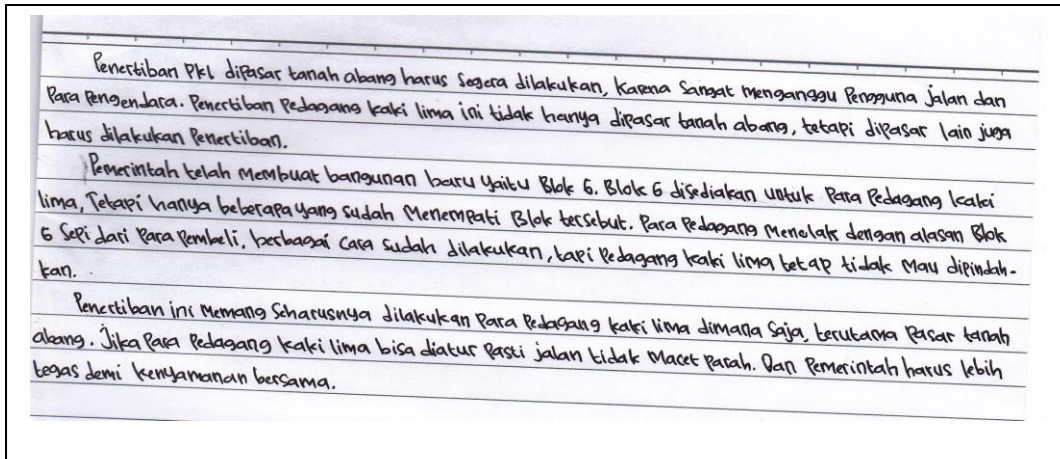 Penertiban PKL dipasar tanah abang harus segera dilakukan, Karena Sangat menganggu Pengguna jalan dan
Para Pengendara. Penertiban Pedagang kaki lima ini tidak hanya dipasar tanah abang, tetapi dipasar lain juga
harus dilakukan Penertiban.
Pemerintah telah Membuat bangunan baru yaitu Blok G. Blok G disediakan untuk Para Pedagang kaki
lima, Tetapi hanya beberapa yang sudah Menempati Blok tersebut. Para Pedagang Menolak dengan alasan Blok
G Sepi dari Para Pembeli, berbagai cara sudah dilakukan, tapi Pedagang kaki lima tetap tidak Mau dipindah-
kan.
Penertiban ini Memang Seharusnya dilakukan Para Pedagang kaki lima dimana Saja, terutama Pasar tanah
abang. Jika Para Pedagang kaki lima bisa diatur Pasti jalan tidak Macet Parah. Dan Pemerintah harus lebih
tegas demi kenyamanan bersama.